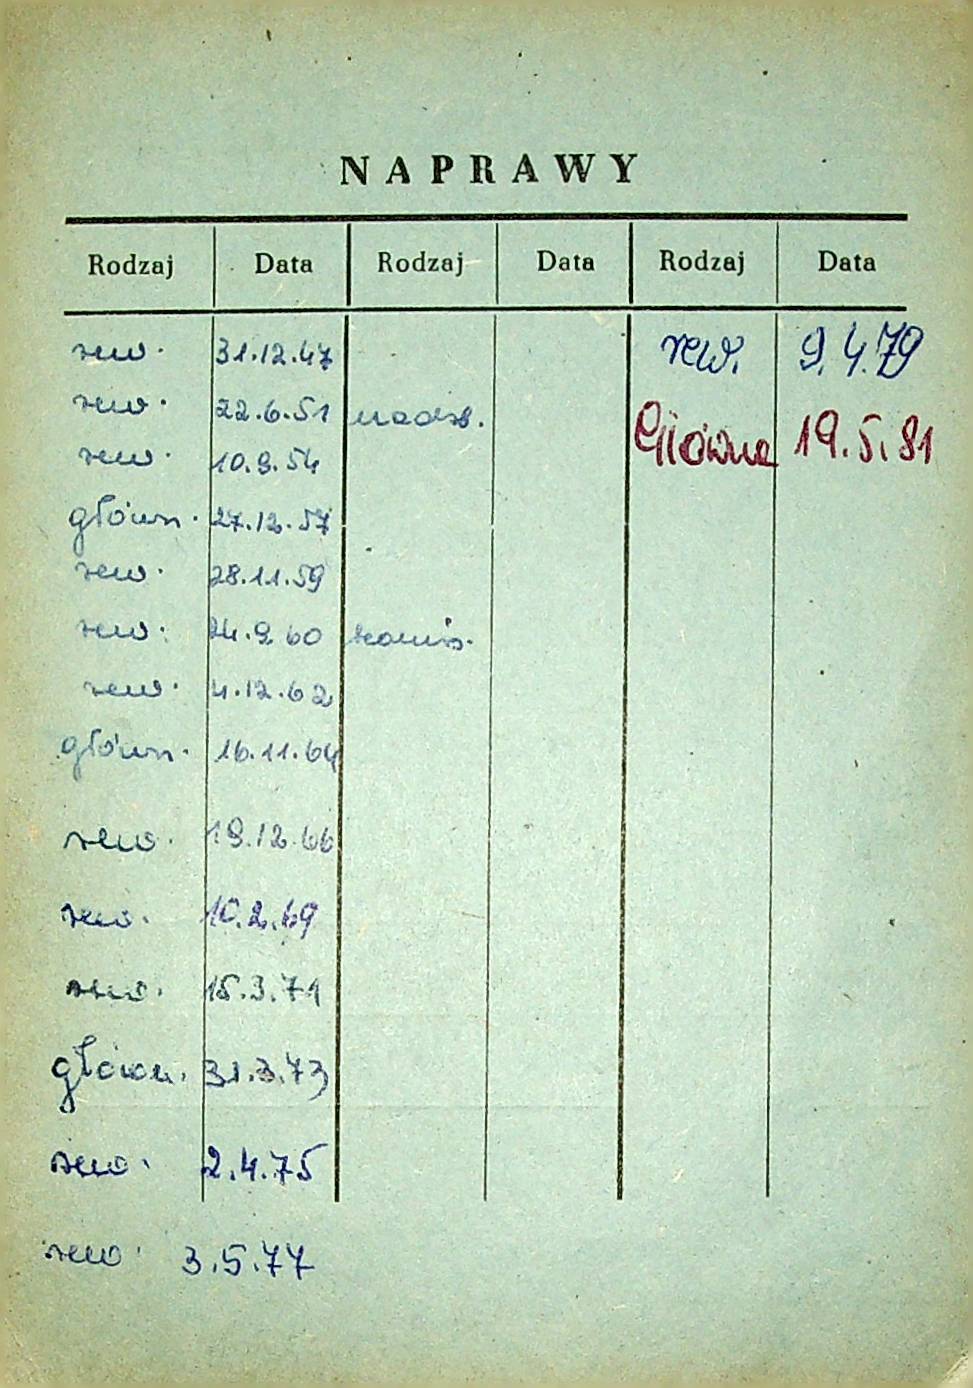 NAPRAWY
Rodzaj Data Rodzaj Data Rodzaj Data
rew. 31.12.47 rew. 9.4.79
rew. 22.6.51 nadzw. Główna 19.5.81
rew. 10.9.54
główn. 27.12.57
rew. 28.11.59
rew. 24.9.60
rew. 4.12.62
główn. 16.11.64
rew. 19.12.66
rew. 10.2.69
rew. 15.3.71
główn. 31.3.73
rew. 2.4.75
rew. 3.5.77